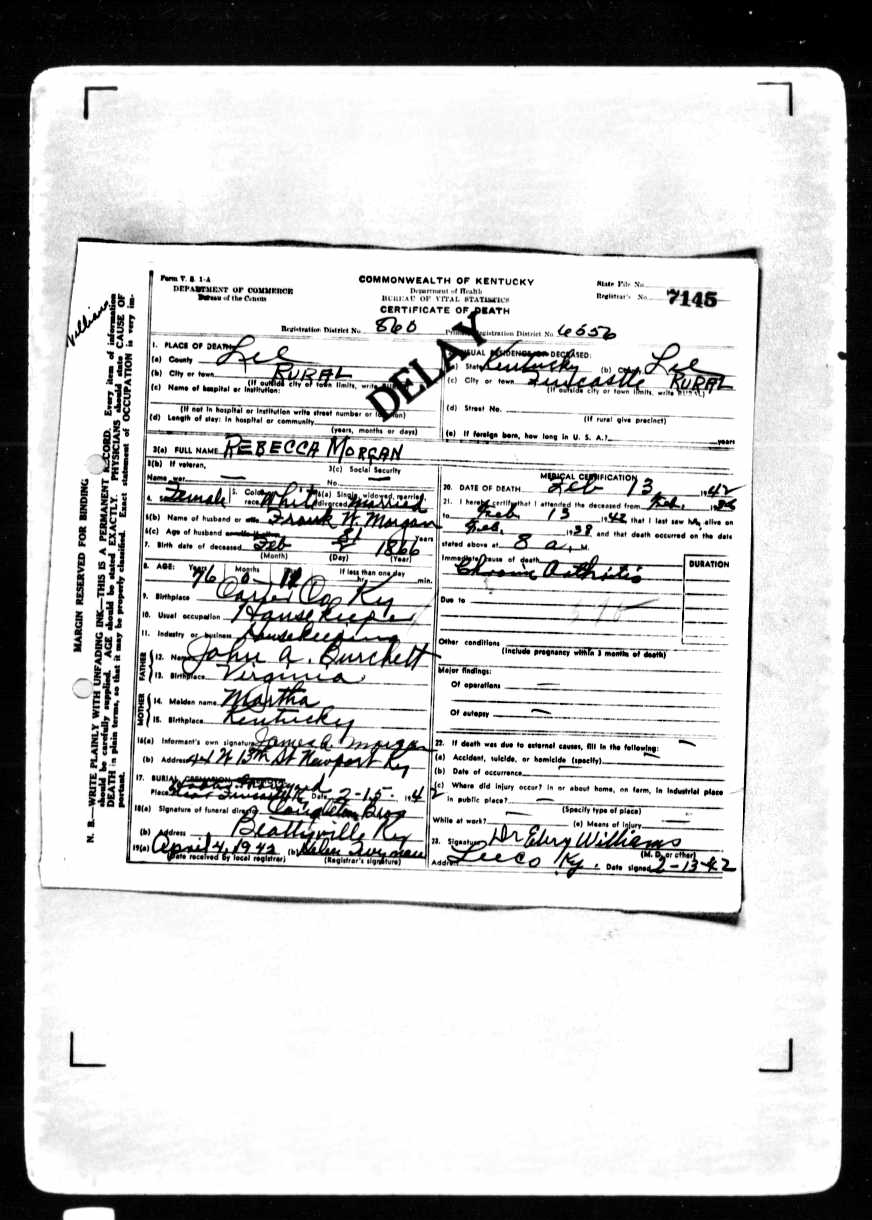 Form V. S. 1-A
DEPARTMENT OF COMMERCE
Bureau of the Census
COMMONWEALTH OF KENTUCKY
Department of Health
BUREAU OF VITAL STATISTICS
CERTIFICATE OF DEATH
State File No.
Registrar's No. 7145
Registration District No. 860
Registration District No. 6656
DELAY
1. PLACE OF DEATH
(a) County Lee
(b) City or town RURAL
(If outside city or town limits, write
(c) Name of hospital or institution:
(If not in hospital or institution write street number or location)
(d) Length of stay: In hospital or community
(years, months or days)
USUAL RESIDENCE OF DECEASED:
(a) State Kentucky (b) County Lee
(c) City or town RURAL
(If outside city or town limits, write RURAL)
(d) Street No.
(If rural give precinct)
(e) If foreign born, how long in U. S. A.? years
3(a) FULL NAME REBECCA MORGAN
3(b) If veteran,
Name war
3(c) Social Security
No.
4. Sex Female 5. Color or race White 6(a) Single, widowed, married, divorced Married
6(b) Name of husband or wife Frank W. Morgan
6(c) Age of husband 81 years
7. Birth date of deceased Feb 1866
(Month) (Day) (Year)
8. AGE: 76 Months 0
If less than one day
hr. min.
9. Birthplace Carter Co Ky
10. Usual occupation Housekeeper
11. Industry or business Housekeeping
FATHER
12. Name John A. Burchett
13. Birthplace Virginia
MOTHER
14. Maiden name Martha
15. Birthplace Kentucky
16(a) Informant's own signature James A. Morgan
(b) Address 44 W 13th St Newport Ky
17. BURIAL, CREMATION
Place Date 2-15-1942
18(a) Signature of funeral director Congleton Bros
(b) Address Beattyville Ky
19(a) April 4, 1942 (b) Helen
(Date received by local registrar) (Registrar's signature)
MEDICAL CERTIFICATION
20. DATE OF DEATH Feb 13 1942
21. I hereby certify that I attended the deceased from Feb.
to Feb 13 1942 that I last saw her alive on
Feb. 1938 and that death occurred on the date
stated above at 8 a. M.
Immediate cause of death
DURATION
Chronic Arthritis
Due to
Other conditions
(Include pregnancy within 3 months of death)
Major findings:
Of operations
Of autopsy
22. If death was due to external causes, fill in the following:
(a) Accident, suicide, or homicide (specify)
(b) Date of occurrence
(c) Where did injury occur? In or about home, on farm, in industrial place
in public place?
(Specify type of place)
While at work? (e) Means of injury
23. Signature Dr Williams
(M. D. or other)
Address Lee Co Ky. Date signed 2-13-42
MARGIN RESERVED FOR BINDING
N. B.—WRITE PLAINLY WITH UNFADING INK—THIS IS A PERMANENT RECORD. Every item of information
should be carefully supplied. AGE should be stated EXACTLY. PHYSICIANS should state CAUSE OF
DEATH in plain terms, so that it may be properly classified. Exact statement of OCCUPATION is very im-
portant.